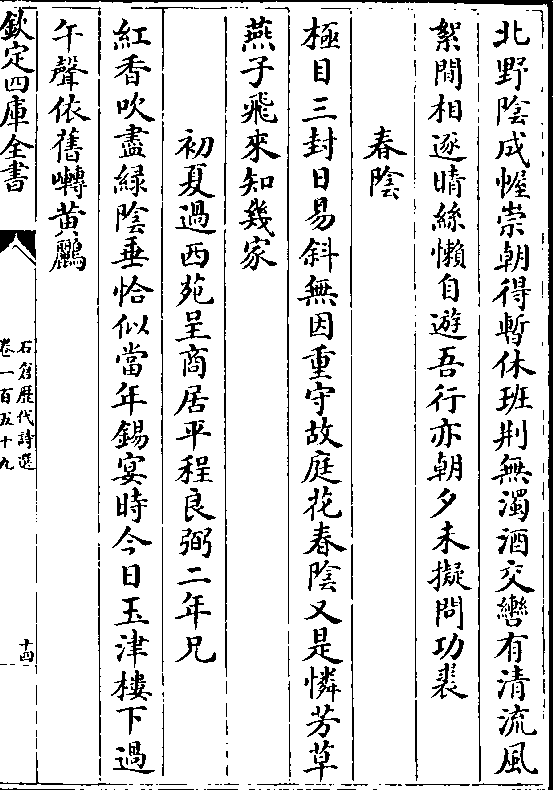 北野陰成幄崇朝得暫休班荆無濁酒交轡有清流風
絮間相逐晴絲懶自遊吾行亦朝夕未擬問功裘
春陰
極目三封日易斜無因重守故庭花春陰又是憐芳草
燕子飛來知幾家
初夏過西苑呈商居平程良弼二年兄
紅香吹盡綠陰垂恰似當年錫宴時今日玉津樓下過
午聲依舊囀黄鸝
欽定四庫全書
石倉歷代詩選
卷一百五十九
十四